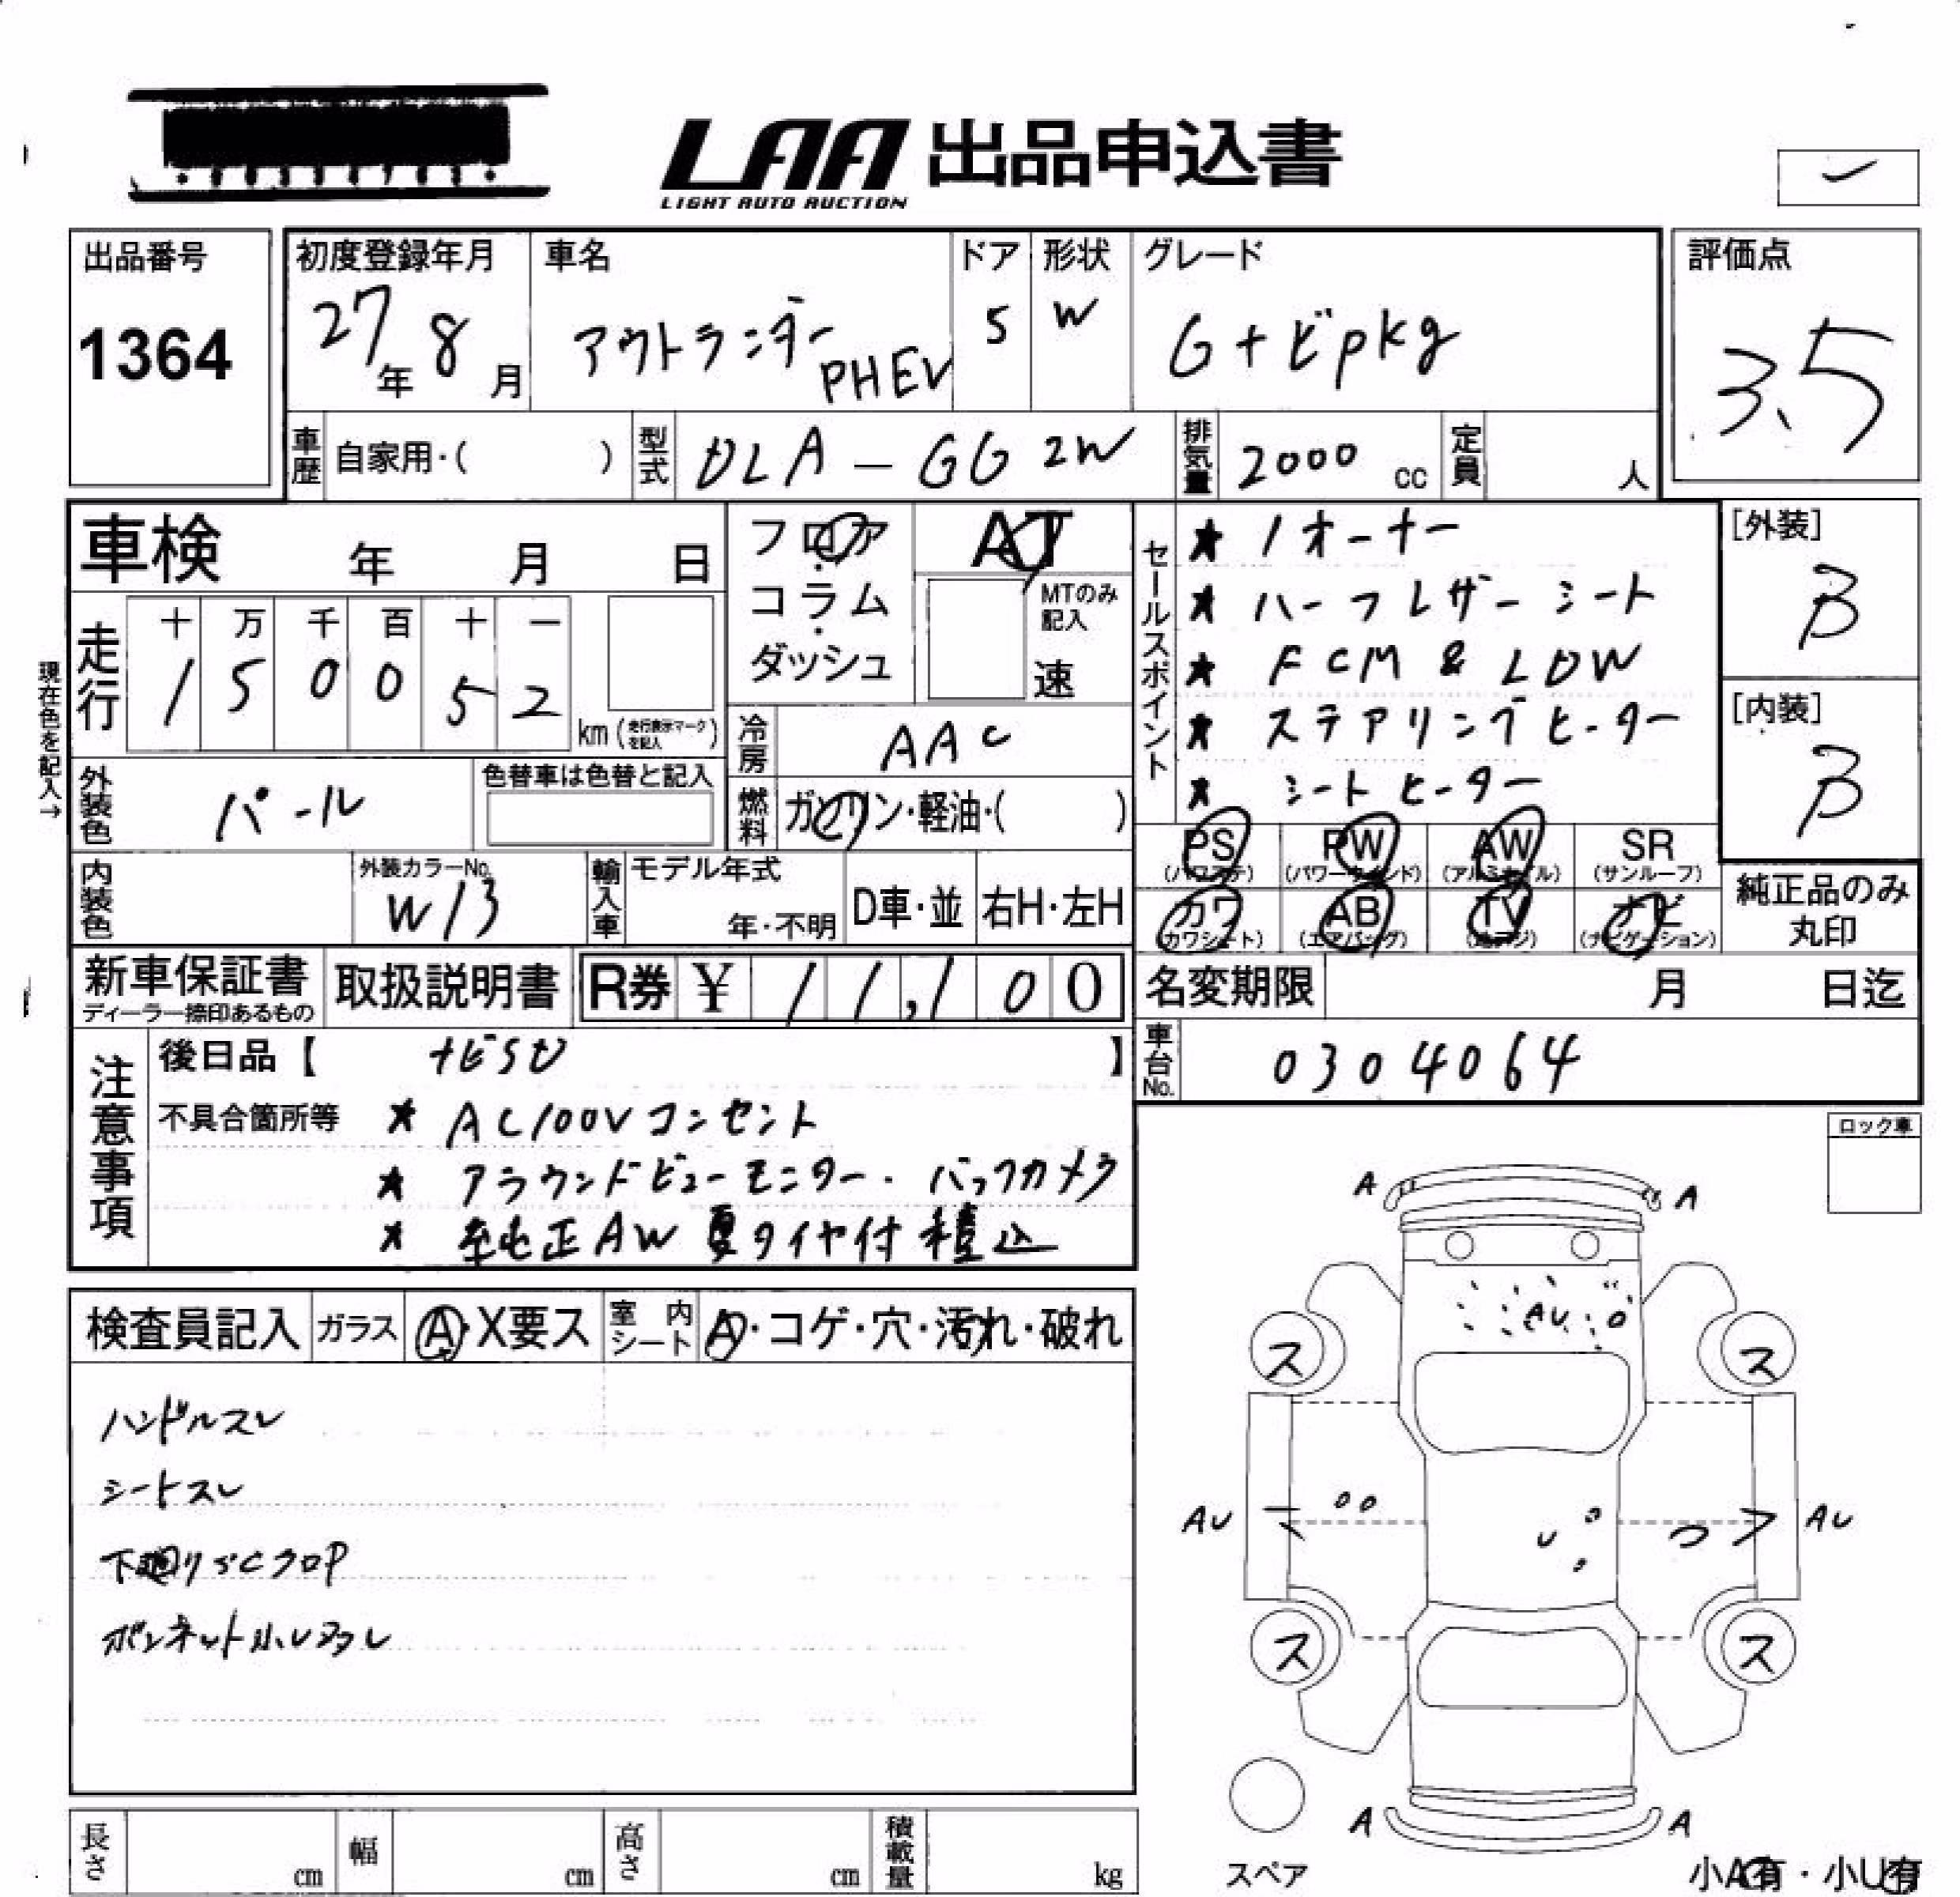 LAA 出品申込書
LIGHT AUTO AUCTION
出品番号
1364
初度登録年月
27年 8月
車名
アウトランダー
PHEV
ドア
5
形状
W
グレード
G ナビpkg
評価点
3.5
車歴 自家用・( )
型式 DLA - GG2W
排気量 2000 cc
定員 人
車検 年 月 日
走行
十 万 千 百 十 一
1 5 0 0 5 2
km (走行表示マークを記入)
現在色を記入→
外装色 パール
色替車は色替と記入
内装色
外装カラーNo.
W13
フロア
コラム
ダッシュ
AT
MTのみ記入
速
冷房 AAC
燃料 ガソリン・軽油・( )
輸入車
モデル年式
年・不明
D車・並
右H・左H
セールスポイント
★ 1オーナー
★ ハーフレザーシート
★ FCM & LDW
★ ステアリングヒーター
★ シートヒーター
[外装]
B
[内装]
B
PS (パワステ)
PW (パワーウインド)
AW (アルミホイル)
SR (サンルーフ)
カワ (カワシート)
AB (エアバッグ)
TV (地デジ)
ナビ (ナビゲーション)
純正品のみ
丸印
新車保証書
ディーラー捺印あるもの
取扱説明書
R券 ¥ 11,100
名変期限 月 日迄
車台No. 0304064
注意事項
後日品【 ナビSD 】
不具合箇所等 ★ AC100Vコンセント
★ アラウンドビューモニター・バックカメラ
★ 純正AW夏タイヤ付積込
ロック車
検査員記入
ガラス
A・X要ス
室内シート
A・コゲ・穴・汚れ・破れ
ハンドルスレ
シートスレ
下廻りSCクロP
ボンネット小U
A A
AU
ス ス
AU U AU
ス ス
A A
スペア
小A有・小U有
長さ cm
幅 cm
高さ cm
積載量 kg